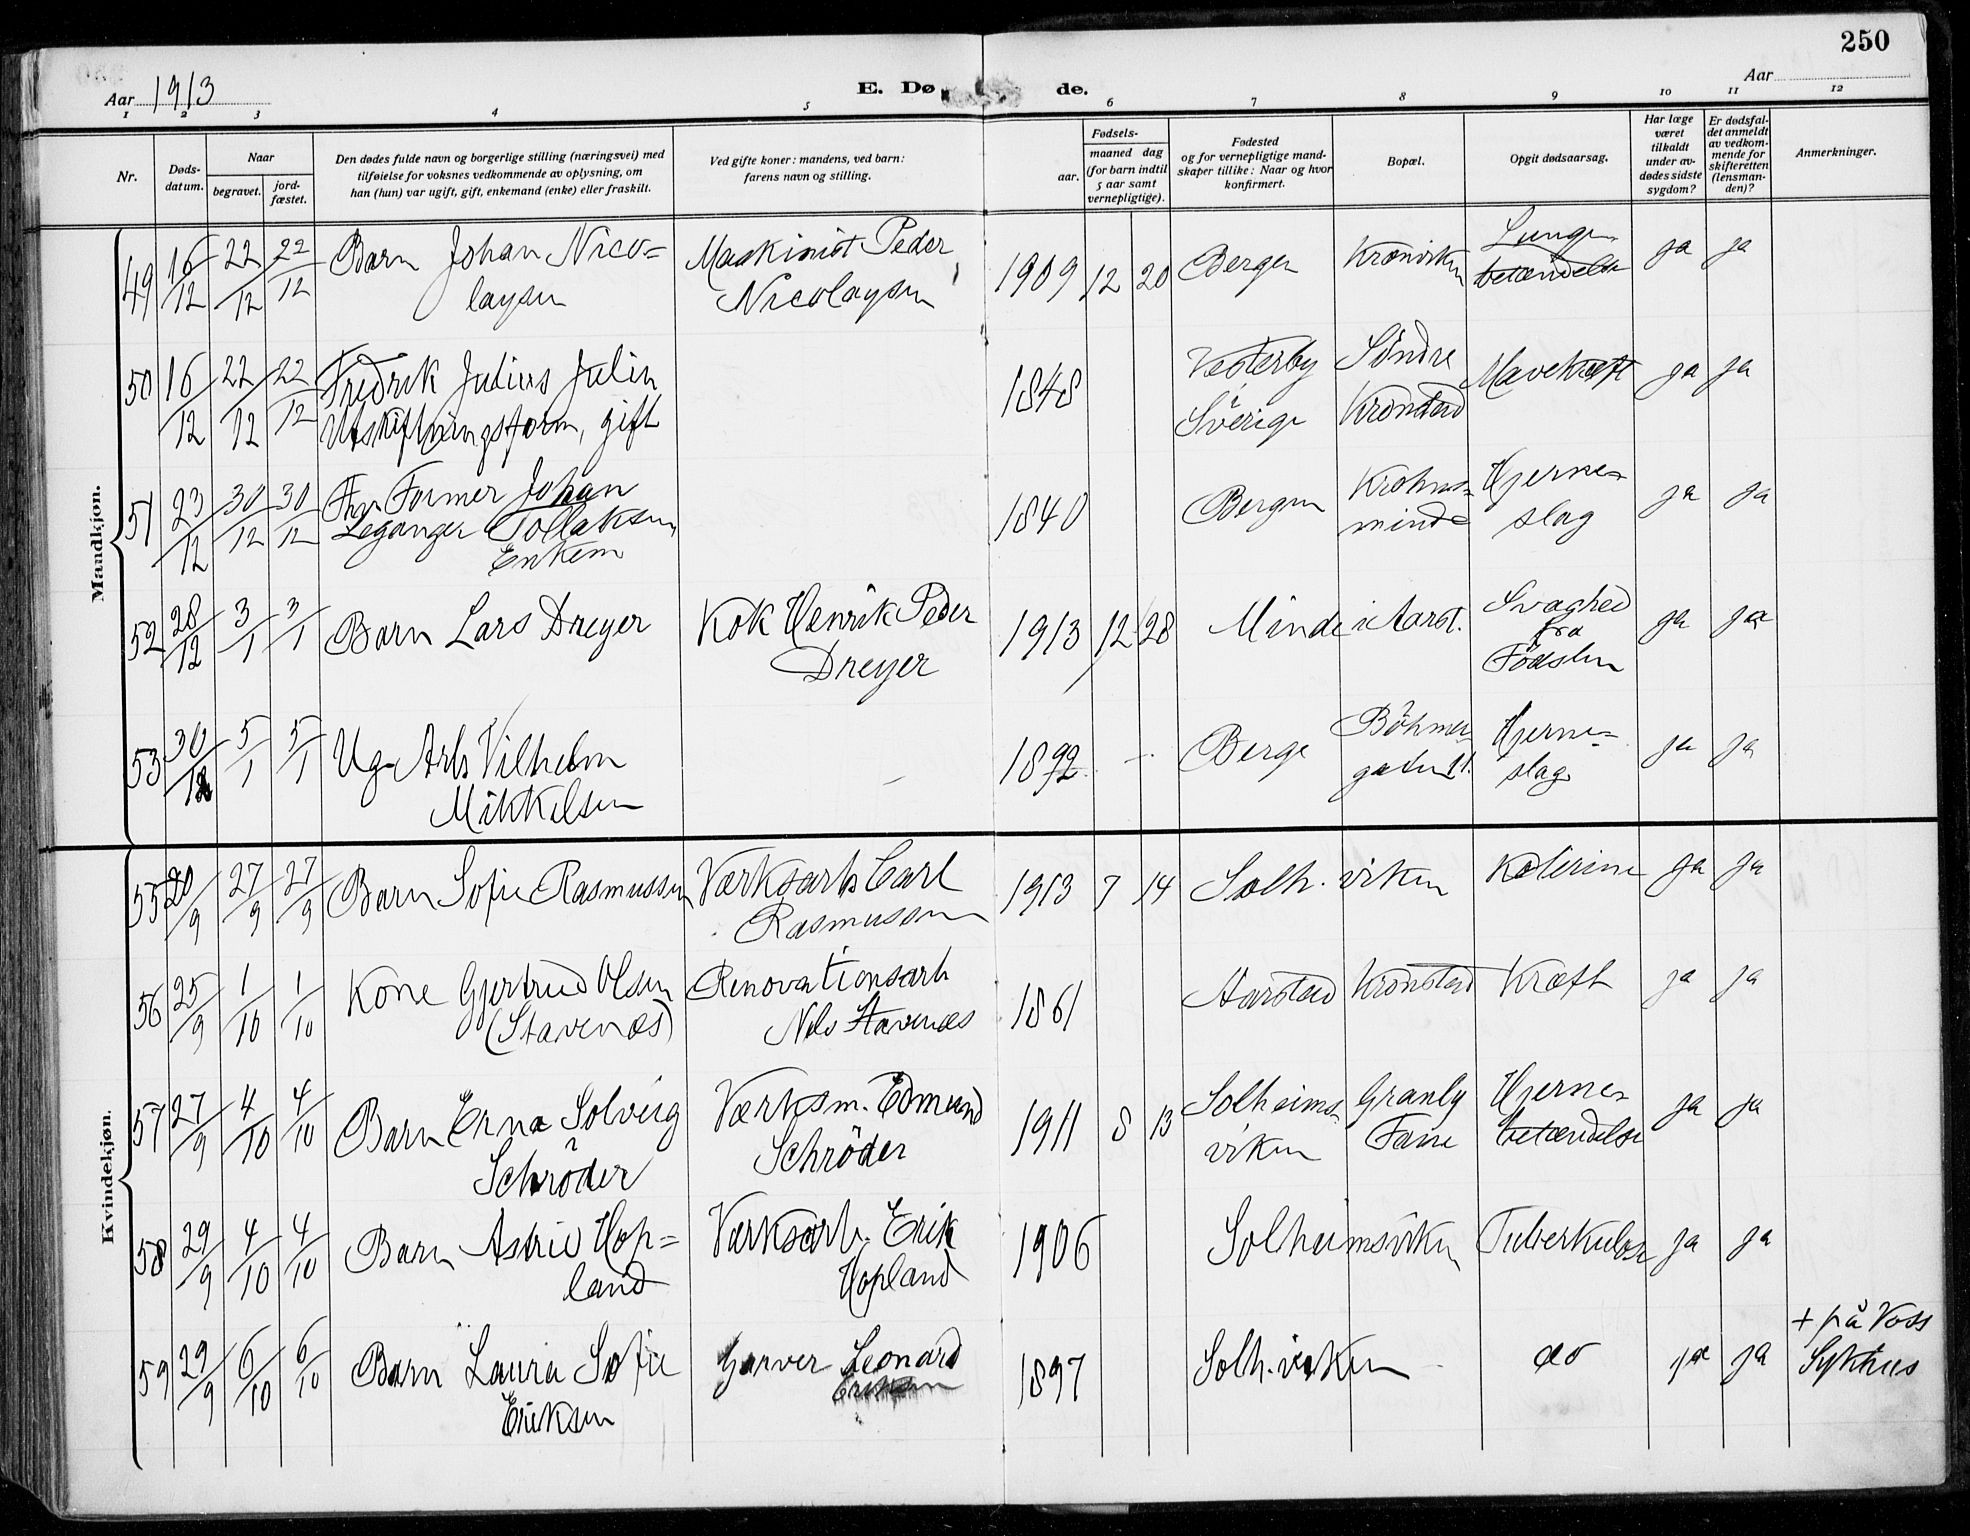 250
Aar 1913
E. Dø de.
Aar
1 2 3 4 5 6 7 8 9 10 11 12
Nr.
Døds-
datum.
Naar
begravet.
jord-
fæstet.
Den dødes fulde navn og borgerlige stilling (næringsvei) med
tilføielse for voksnes vedkommende av oplysning, om
han (hun) var ugift, gift, enkemand (enke) eller fraskilt.
Ved gifte koner: mandens, ved barn:
farens navn og stilling.
Fødsels-
aar.
maaned dag
(for barn indtil
5 aar samt
vernepligtige).
Fødested
og for vernepligtige mand-
skaper tillike: Naar og hvor
konfirmert.
Bopæl.
Opgit dødsaarsag.
Har læge
været
tilkaldt
under av-
dødes sidste
sygdom?
Er dødsfal-
det anmeldt
av vedkom-
mende for
skifteretten
(lensman-
den)?
Anmerkninger.
Mandkjøn.
49 16/12 22/12 22/12 Barn Johan Nico=
laysen
Maskinist Peder
Nicolaysen
1909 12 20 Bergen Kronviken Lunge
betændelse ja ja
50 16/12 22/12 22/12 Fredrik Julius Julin
Utskiftningsform, gift
1848 Vesterby
Sverige
Söndre
Kronstad
Mavekræft ja ja
51 23/12 30/12 30/12 Former Johan
Leganger Tollaksen
Enkem
1840 Bergen Krohns=
minde
Hjerne=
slag ja ja
52 28/12 3/1 3/1 Barn Lars Dreyer
Kok Henrik Peder
Dreyer
1913 12 28 Minde i Aarst.
Svaghed
fra
Födslen ja ja
53 30/12 5/1 5/1 Ug. Arb Vilhelm
Mikkelsen
—
1892 — Berge Böhmer=
gaten 21.
Hjerne=
slag ja ja
Kvindekjøn.
55 20/9 27/9 27/9 Barn Sofie Rasmussen
Værksarb Carl
Rasmussen
1913 7 14 Solh. viken Kolerine ja ja
56 25/9 1/10 1/10 Kone Gjertrud Olsen
(Stavenæs)
Renovationsarb
Nels Stavenæs
1861 Aarstad Kronstad Kræft ja ja
57 27/9 4/10 4/10 Barn Erna Solveig
Schröder
Værksm. Edmund
Schröder
1911 8 13 Solheims=
viken
Granly
Fane
Hjerne=
betændelse ja ja
58 29/9 4/10 4/10 Barn Astrid Hop=
land
Værksarb. Erik
Hopland
1906 Solheimsviken Tuberkulose ja ja
59 29/9 6/10 6/10 Barn Laura Sofie
Eriksen
Garver Leonard
Eriksen
1897 Solh. viken do ja ja
+ på Voss
Sykhus